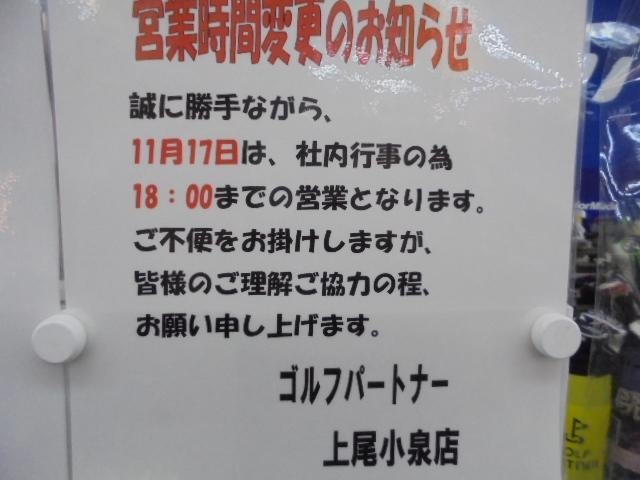 営業時間変更のお知らせ
誠に勝手ながら、
11月17日は、社内行事の為
18：00までの営業となります。
ご不便をお掛けしますが、
皆様のご理解ご協力の程、
お願い申し上げます。
ゴルフパートナー
上尾小泉店